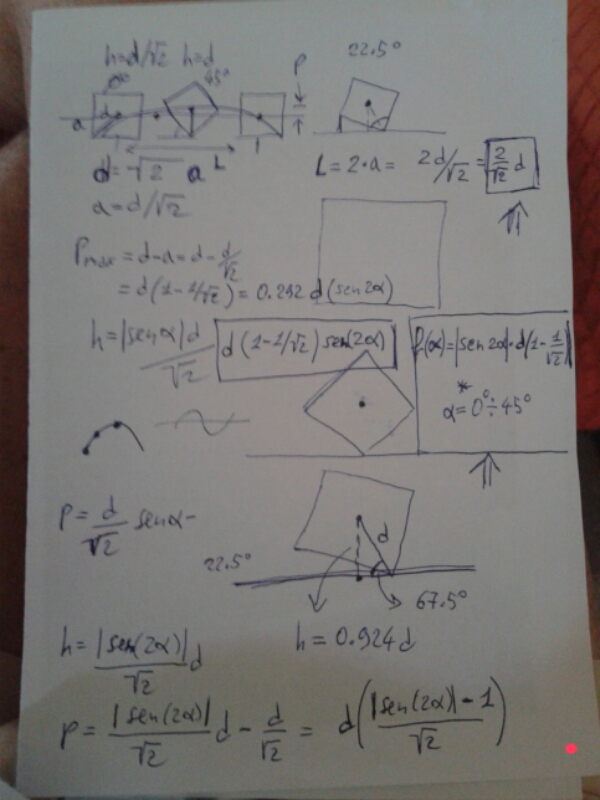 h=d/√2 h=d
0° 45° P 22.5°
d
a L
d=√2 a L=2·a= 2d/√2 = 2/√2 d
a=d/√2
Pmax=d-a=d-d/√2
=d(1-1/√2)=0.292 d(sen2α)
h=|senα|d/√2 d(1-1/√2)sen(2α) f(α)=|sen2α|·d(1-1/√2)
* α=0°÷45°
P=d/√2 senα-
d
22.5°
67.5°
h=0.924d
h=|sen(2α)|/√2 d
P=|sen(2α)|/√2 d-d/√2=d(|sen(2α)|-1/√2)